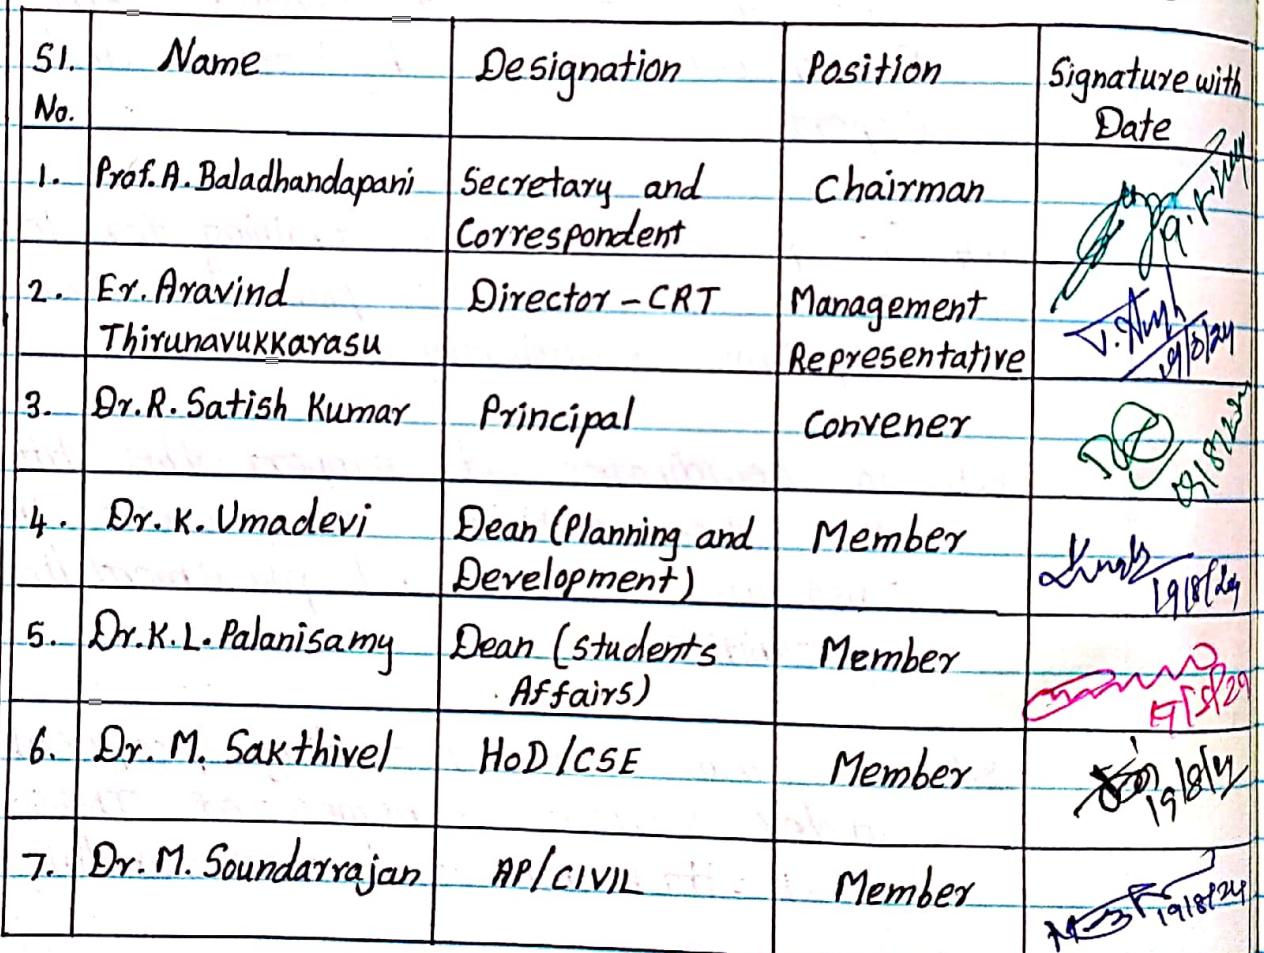 Sl. No. Name Designation Position Signature with Date
1. Prof. A. Baladhandapani Secretary and Correspondent Chairman
2. Er. Aravind Thirunavukkarasu Director - CRT Management Representative 19/8/24
3. Dr. R. Satish Kumar Principal Convener
4. Dr. K. Umadevi Dean (Planning and Development) Member 19/8/24
5. Dr. K. L. Palanisamy Dean (Students Affairs) Member
6. Dr. M. Sakthivel HoD/CSE Member 19/8/24
7. Dr. M. Soundarrajan AP/CIVIL Member 19/8/24